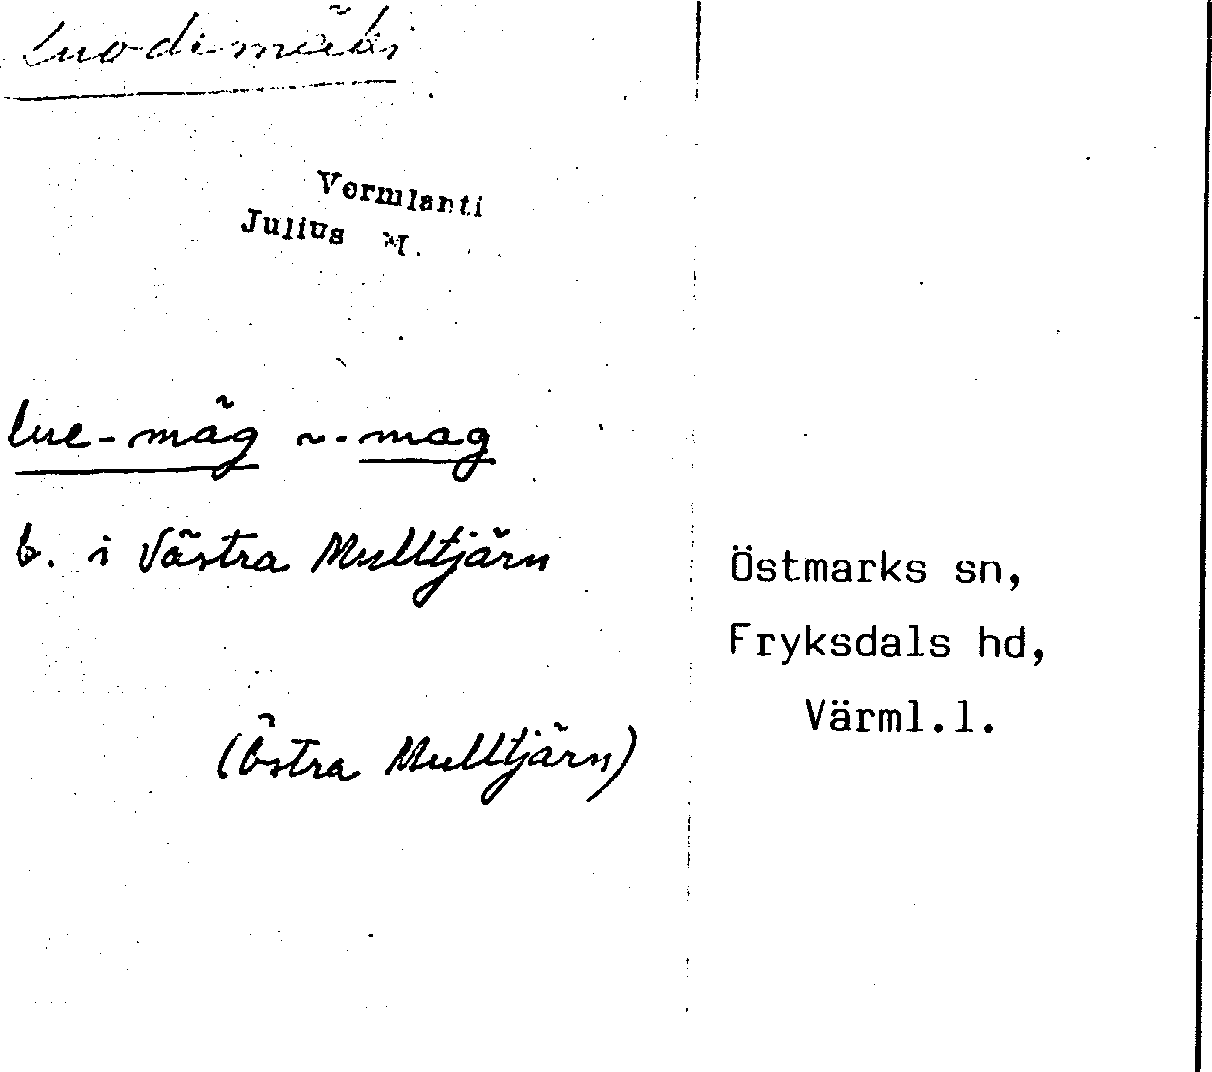 Luodimäki
Vermlanti
Julius M.
lue-mäg ~ -mag
b. i Västra Mulltjärn
(Östra Mulltjärn)
Östmarks sn,
Fryksdals hd,
Värml.l.